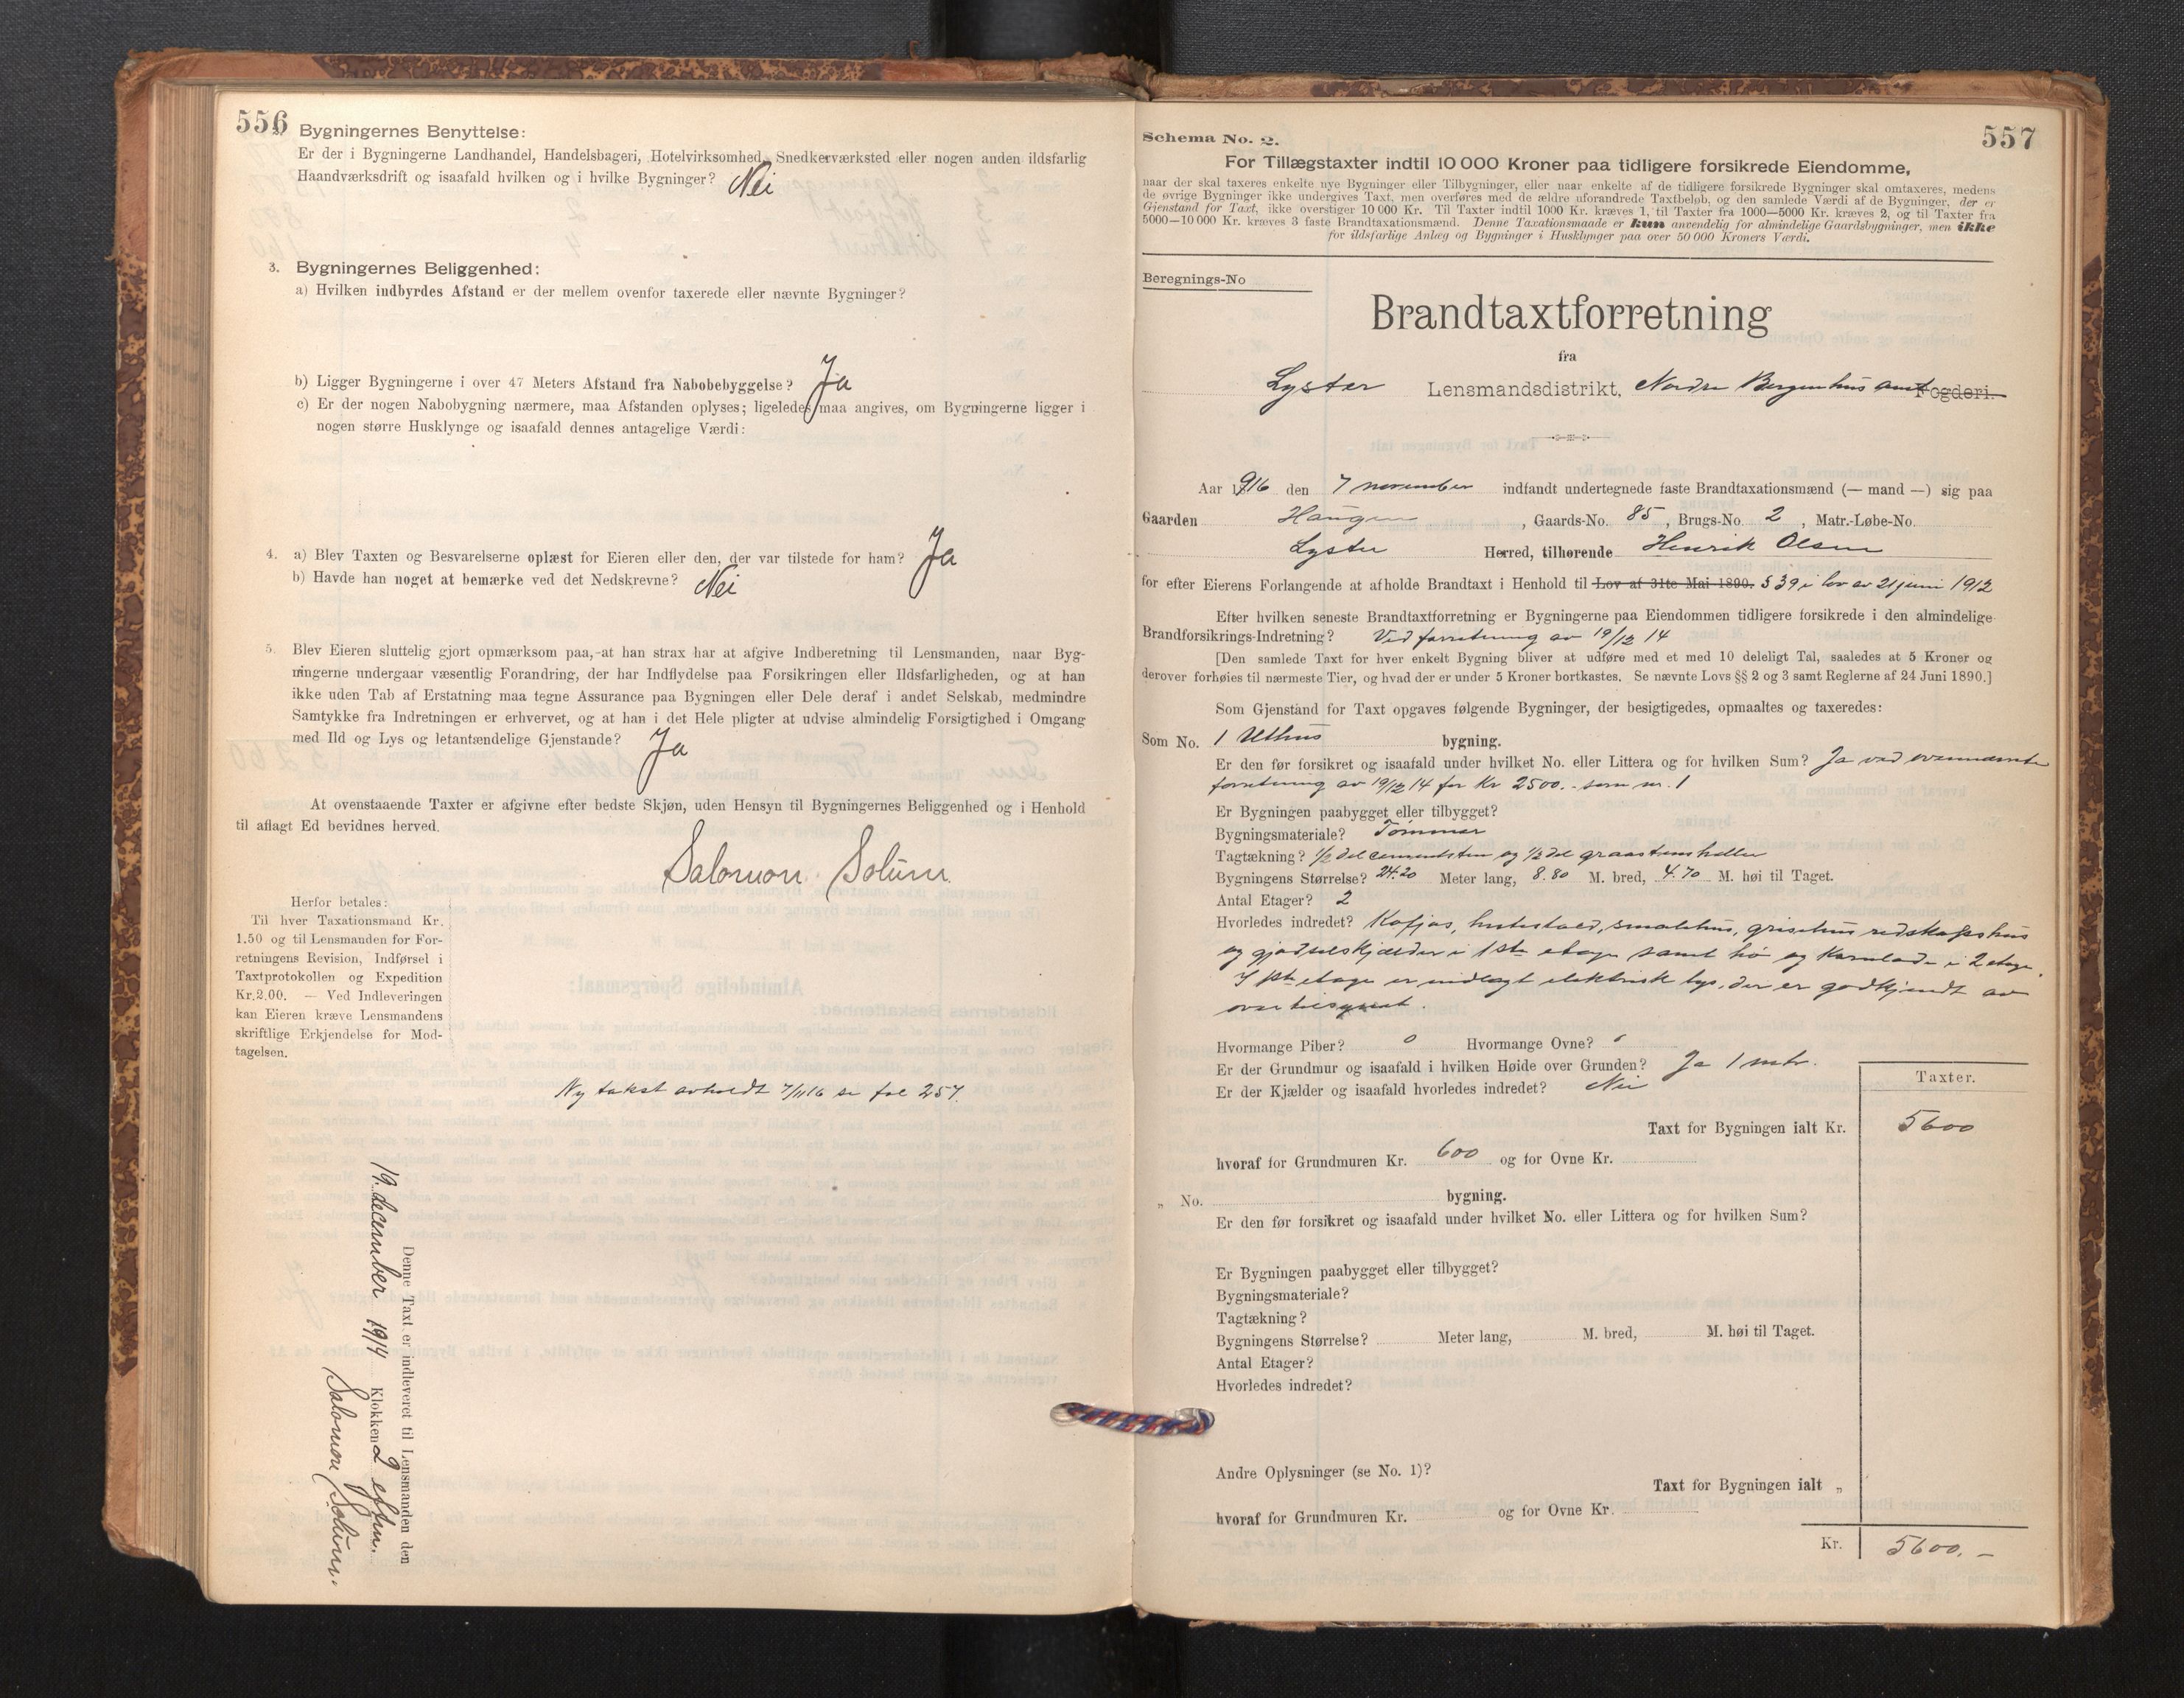 556
2. Bygningernes Benyttelse:
Er der i Bygningerne Landhandel, Handelsbageri, Hotelvirksomhed, Snedkerværksted eller nogen anden ildsfarlig
Haandværksdrift og isaafald hvilken og i hvilke Bygninger? Nei
3. Bygningernes Beliggenhed:
a) Hvilken indbyrdes Afstand er der mellem ovenfor taxerede eller nævnte Bygninger?
b) Ligger Bygningerne i over 47 Meters Afstand fra Nabobebyggelse? Ja
c) Er der nogen Nabobygning nærmere, maa Afstanden oplyses; ligeledes maa angives, om Bygningerne ligger i
nogen større Husklynge og isaafald dennes antagelige Værdi:
4. a) Blev Taxten og Besvarelserne oplæst for Eieren eller den, der var tilstede for ham? Ja
b) Havde han noget at bemærke ved det Nedskrevne? Nei
5. Blev Eieren sluttelig gjort opmærksom paa, at han strax har at afgive Indberetning til Lensmanden, naar Byg-
ningerne undergaar væsentlig Forandring, der har Indflydelse paa Forsikringen eller Ildsfarligheden, og at han
ikke uden Tab af Erstatning maa tegne Assurance paa Bygningen eller Dele deraf i andet Selskab, medmindre
Samtykke fra Indretningen er erhvervet, og at han i det Hele pligter at udvise almindelig Forsigtighed i Omgang
med Ild og Lys og letantændelige Gjenstande? Ja
At ovenstaaende Taxter er afgivne efter bedste Skjøn, uden Hensyn til Bygningernes Beliggenhed og i Henhold
til aflagt Ed bevidnes herved.
Salomon Solum
Herfor betales:
Til hver Taxationsmand Kr.
1.50 og til Lensmanden for For-
retningens Revision, Indførsel i
Taxtprotokollen og Expedition
Kr. 2.00. — Ved Indleveringen
kan Eieren kræve Lensmandens
skriftlige Erkjendelse for Mod-
tagelsen.
Ny takst avholdt 7/11 16 se fol 257.
Denne Taxt er indleveret til Lensmanden den
19. december 1914 Klokken 2 eftm.
Salomon Solum.
557
Schema No. 2.
For Tillægstaxter indtil 10 000 Kroner paa tidligere forsikrede Eiendomme,
naar der skal taxeres enkelte nye Bygninger eller Tilbygninger, eller naar enkelte af de tidligere forsikrede Bygninger skal omtaxeres, medens
de øvrige Bygninger ikke undergives Taxt, men overføres med de ældre uforandrede Taxtbeløb, og den samlede Værdi af de Bygninger, der er
Gjenstand for Taxt, ikke overstiger 10 000 Kr. Til Taxter indtil 1000 Kr. kræves 1, til Taxter fra 1000—5000 Kr. kræves 2, og til Taxter fra
5000—10 000 Kr. kræves 3 faste Brandtaxationsmænd. Denne Taxationsmaade er kun anvendelig for almindelige Gaardsbygninger, men ikke
for ildsfarlige Anlæg og Bygninger i Husklynger paa over 50 000 Kroners Værdi.
Beregnings-No
Brandtaxtforretning
fra
Lyster Lensmandsdistrikt, Nordre Bergenhus amt Fogderi.
Aar 1916 den 7 november indfandt undertegnede faste Brandtaxationsmænd (— mand —) sig paa
Gaarden Haugen, Gaards-No. 85, Brugs-No. 2, Matr.-Løbe-No.
Lyster Herred, tilhørende Henrik Olsen
for efter Eierens Forlangende at afholde Brandtaxt i Henhold til Lov af 31te Mai 1890. § 39 i lov av 21 juni 1912
Efter hvilken seneste Brandtaxtforretning er Bygningerne paa Eiendommen tidligere forsikrede i den almindelige
Brandforsikrings-Indretning? Ved forretning av 19/12 14
[Den samlede Taxt for hver enkelt Bygning bliver at udføre med et med 10 deleligt Tal, saaledes at 5 Kroner og
derover forhøies til nærmeste Tier, og hvad der er under 5 Kroner bortkastes. Se nævnte Lovs §§ 2 og 3 samt Reglerne af 24 Juni 1890.]
Som Gjenstand for Taxt opgaves følgende Bygninger, der besigtigedes, opmaaltes og taxeredes:
Som No. 1 Uthus bygning.
Er den før forsikret og isaafald under hvilket No. eller Littera og for hvilken Sum? Ja ved ovennævnte
forretning av 19/12 14 for Kr 2500.- som nr. 1
Er Bygningen paabygget eller tilbygget?
Bygningsmateriale? Tømmer
Tagtækning? 1/2 del cementsten og 1/2 del graastensheller
Bygningens Størrelse? 24.20 Meter lang, 8.80 M. bred, 4.70 M. høi til Taget.
Antal Etager? 2
Hvorledes indredet? Kofjøs, hestestald, smalehus, grisehus redskapshus
og gjødselskjælder i 1ste etage samt hø og kornlade i 2 etage.
I 1ste etage er indlagt elektrisk lys, der er godkjendt av
Hvormange Piber? 0 Hvormange Ovne?
Er der Grundmur og isaafald i hvilken Høide over Grunden? Ja 1 mtr.
Er der Kjælder og isaafald hvorledes indredet? Nei
Taxter.
Taxt for Bygningen ialt Kr. 5600
hvoraf for Grundmuren Kr. 600 og for Ovne Kr.
„ No. bygning.
Er den før forsikret og isaafald under hvilket No. eller Littera og for hvilken Sum?
Er Bygningen paabygget eller tilbygget?
Bygningsmateriale?
Tagtækning?
Bygningens Størrelse? Meter lang, M. bred, M. høi til Taget.
Antal Etager?
Hvorledes indredet?
Andre Oplysninger (se No. 1)?
Taxt for Bygningen ialt „
hvoraf for Grundmuren Kr. og for Ovne Kr.
Kr. 5600.-